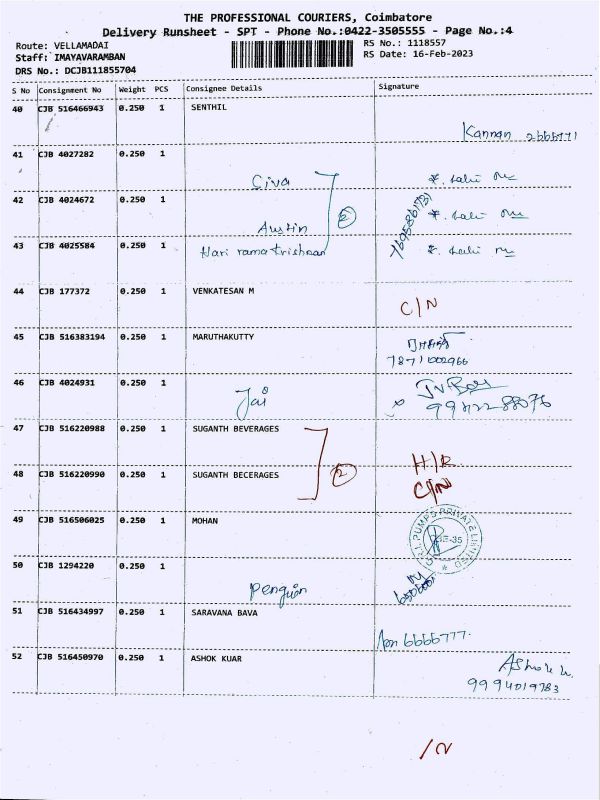 THE PROFESSIONAL COURIERS, Coimbatore
Delivery Runsheet - SPT - Phone No.:0422-3505555 - Page No.:4
Route: VELLAMADAI RS No.: 1118557
Staff: IMAYAVARAMBAN RS Date: 16-Feb-2023
DRS No.: DCJB111855704
S No Consignment No Weight PCS Consignee Details Signature
40 CJB 516466943 0.250 1 SENTHIL
Kannan
41 CJB 4027282 0.250 1
Civa
42 CJB 4024672 0.250 1
Austin 2
43 CJB 4025584 0.250 1
Hari ramakrishnan
44 CJB 177372 0.250 1 VENKATESAN M
C/N
45 CJB 516383194 0.250 1 MARUTHAKUTTY
7871002966
46 CJB 4024931 0.250 1
Jai
47 CJB 516220988 0.250 1 SUGANTH BEVERAGES
2 H/R
48 CJB 516220990 0.250 1 SUGANTH BECERAGES
C/N
49 CJB 516506025 0.250 1 MOHAN
PUMPS PRIVATE LIMITED
50 CJB 1294220 0.250 1
Penguin
51 CJB 516434997 0.250 1 SARAVANA BAVA
6666777
52 CJB 516450970 0.250 1 ASHOK KUAR
Ashok k
9994019783